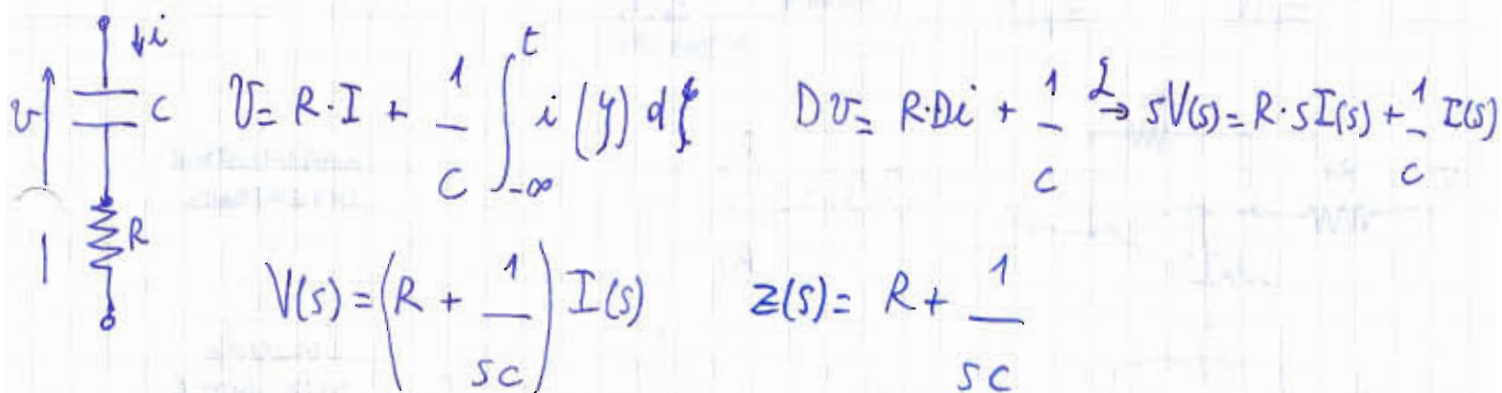 ↓i
v
C
R
v = R·I + 1/C ∫_{-∞}^{t} i(y) dξ
Dv = R·Di + 1/C →ℒ sV(s) = R·sI(s) + 1/C I(s)
V(s) = (R + 1/sC) I(s)
z(s) = R + 1/sC